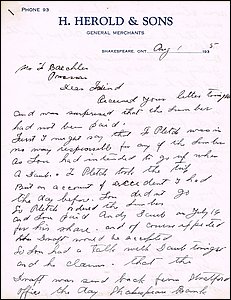 PHONE 93
H. HEROLD & SONS
GENERAL MERCHANTS
SHAKESPEARE, ONT. Aug 1 1935
Mr L Baechler
Dear Friend
Received your letter tonight
and was surprised that the lumber
had not been paid.
First I might say that L Pletch was in
no way responsible for any of the lumber
as Lou had intended to go up when
L Pletch took the trip
But on account of accident I had
the day before Lou did not go
So Pletch ordered the lumber
and Lou paid Andy Saub on July 16
for his share and of course expected
the draft would be accepted
So Lou had a talk with Saub tonight
and he claims that the
draft was send back from Stratford
office the day Shakespeare Bank